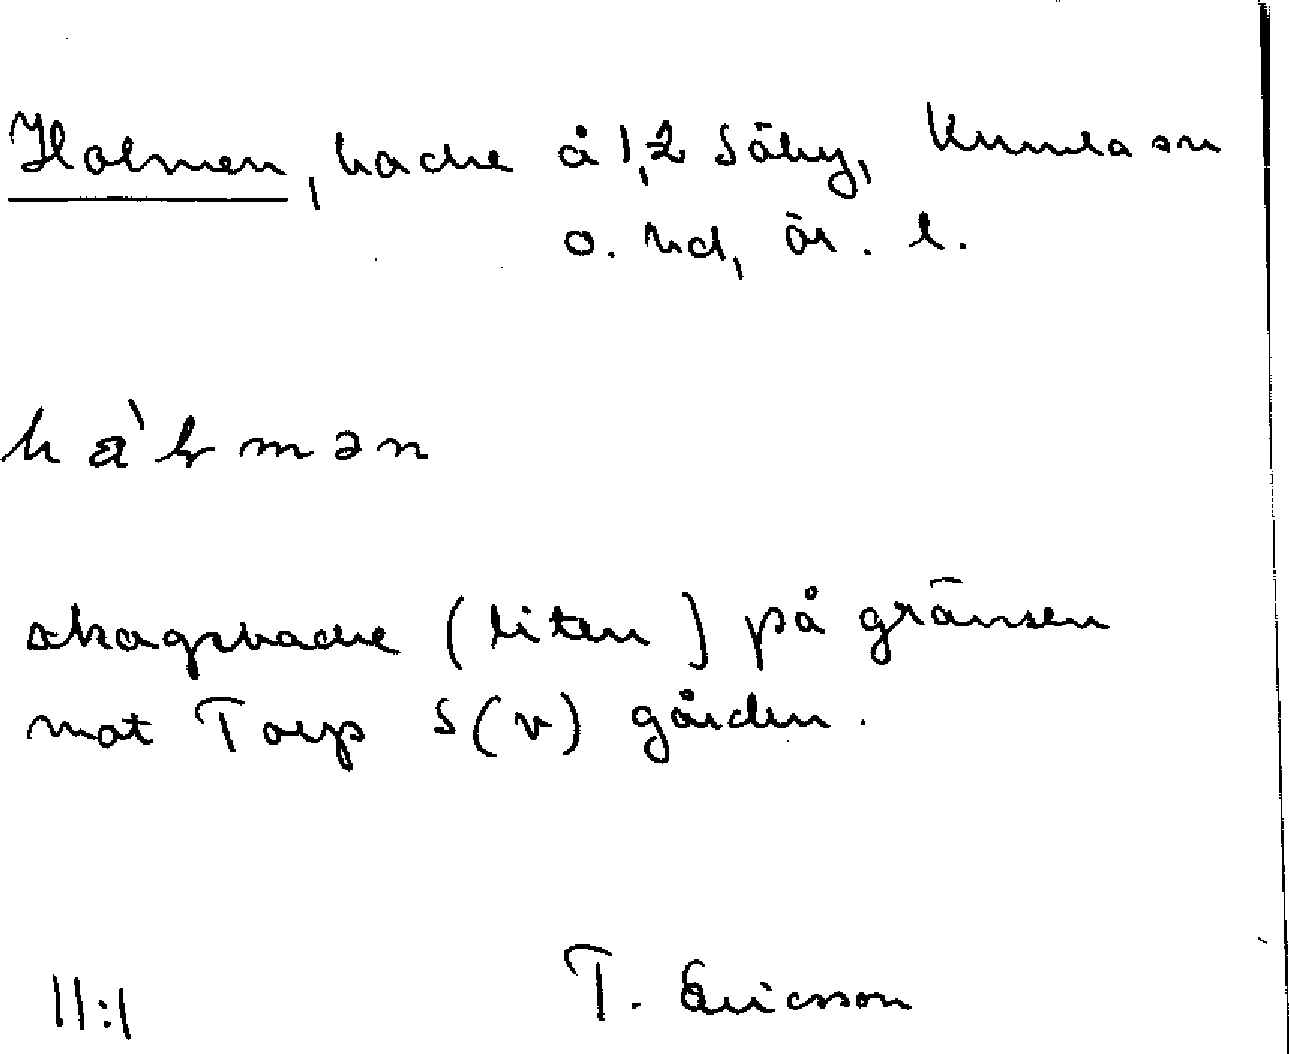 Holmen, backe å 1,2 Säby, Kumla sn
o. hd, Ör. l.
skogsbacke (liten) på gränsen
mot Torp S(v) gården.
11:1 T. Ericsson